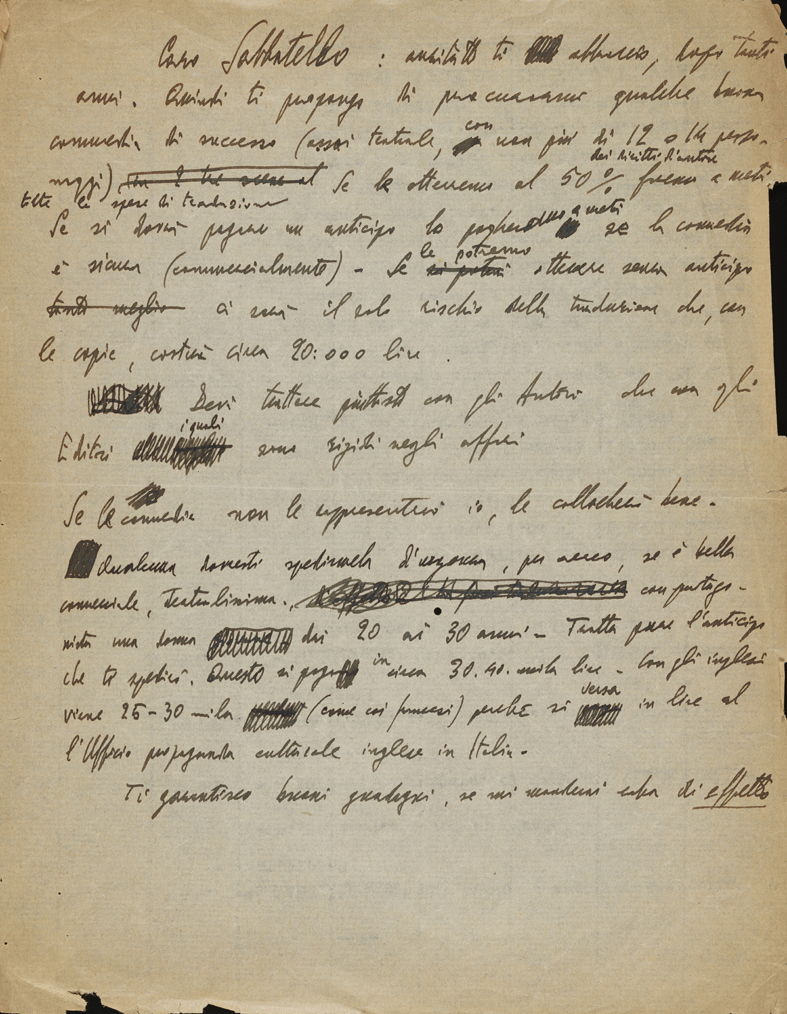 Caro Sabbatello : anzitutto ti abbraccio, dopo tanti
anni. Quindi ti propongo di procurarmi qualche buona
commedia di successo (assai teatrale, con non più di 12 o 14 perso-
naggi) Se le otteniamo al 50% dei diritti d'autore faremo a metà
tutte le spese di traduzione
Se si dovrà pagare un anticipo lo pagheremo a metà se la commedia
è sicura (commercialmente) - Se le potremo ottenere senza anticipo
tanto meglio ci sarà il solo rischio della traduzione che, con
le copie, costerà circa 20.000 lire.
Devi trattare piuttosto con gli Autori che con gli
Editori i quali sono rigidi negli affari
Se le commedie non le rappresenterò io, le collocherò bene.
Qualcuna dovresti spedirmela d'urgenza, per aereo, se è bella
comerciale, Teatralissima. con protago-
nista una donna dai 20 ai 30 anni - Tratta pure l'anticipo
che ti spedirò. Questo si paga in circa 30.40.mila lire - Con gli inglesi
viene 25-30 mila (come coi francesi) perché si versa in lire al
l'Ufficio propaganda culturale inglese in Italia.
Ti garantisco buoni guadagni, se mi manderai roba di effetto